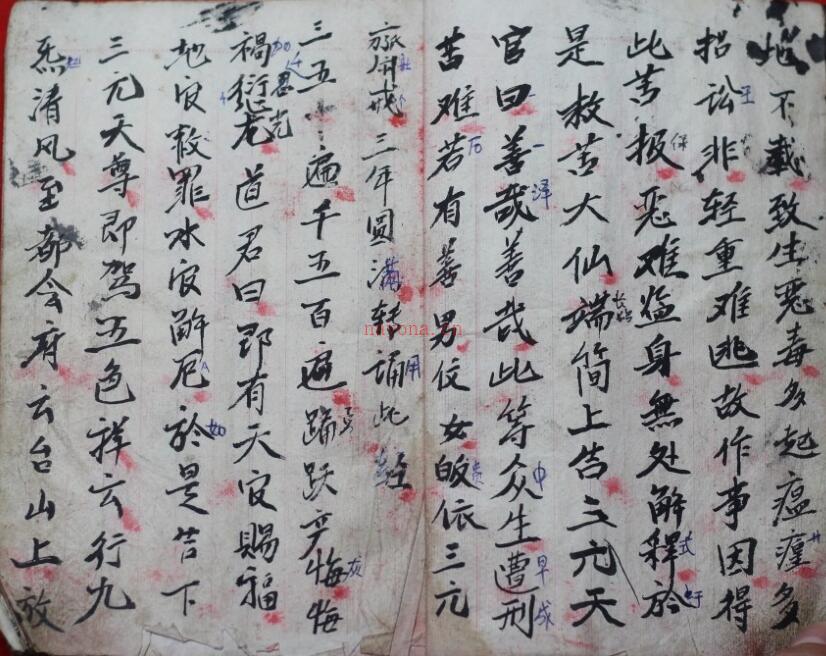 地不載致生惡毒多起瘟瘽多
招訟非轻重难逃故作事因得
此苦报恶难盗身無处解釋於
是救苦大仙端简上告三元天
官曰善哉善哉此等众生遭刑
苦难若有善男信女皈依三元
戒三年圆满转誦此經
三五遍千五百遍踊跃忏悔悔
祸衍老道君曰即有天官賜福
地官赦罪水官解厄於是告下
三元天尊即驾五色祥云行九
炁清风至都会府云台山上放